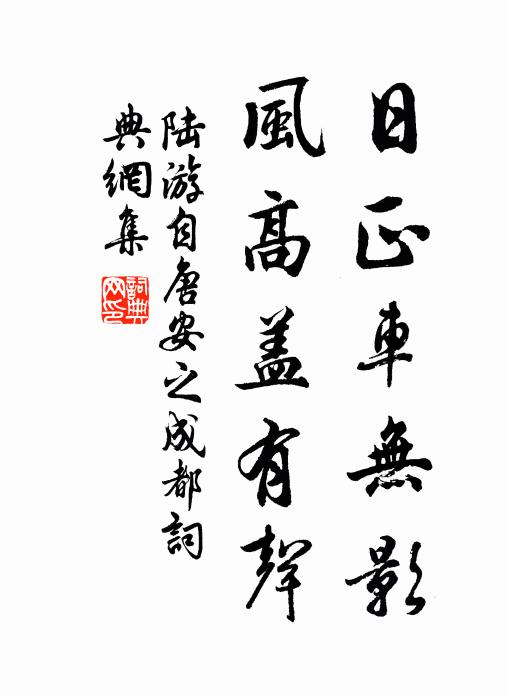 日正車無影
風高盖有聲
陆游自唐安之成都詞
典網集
詞典
网印